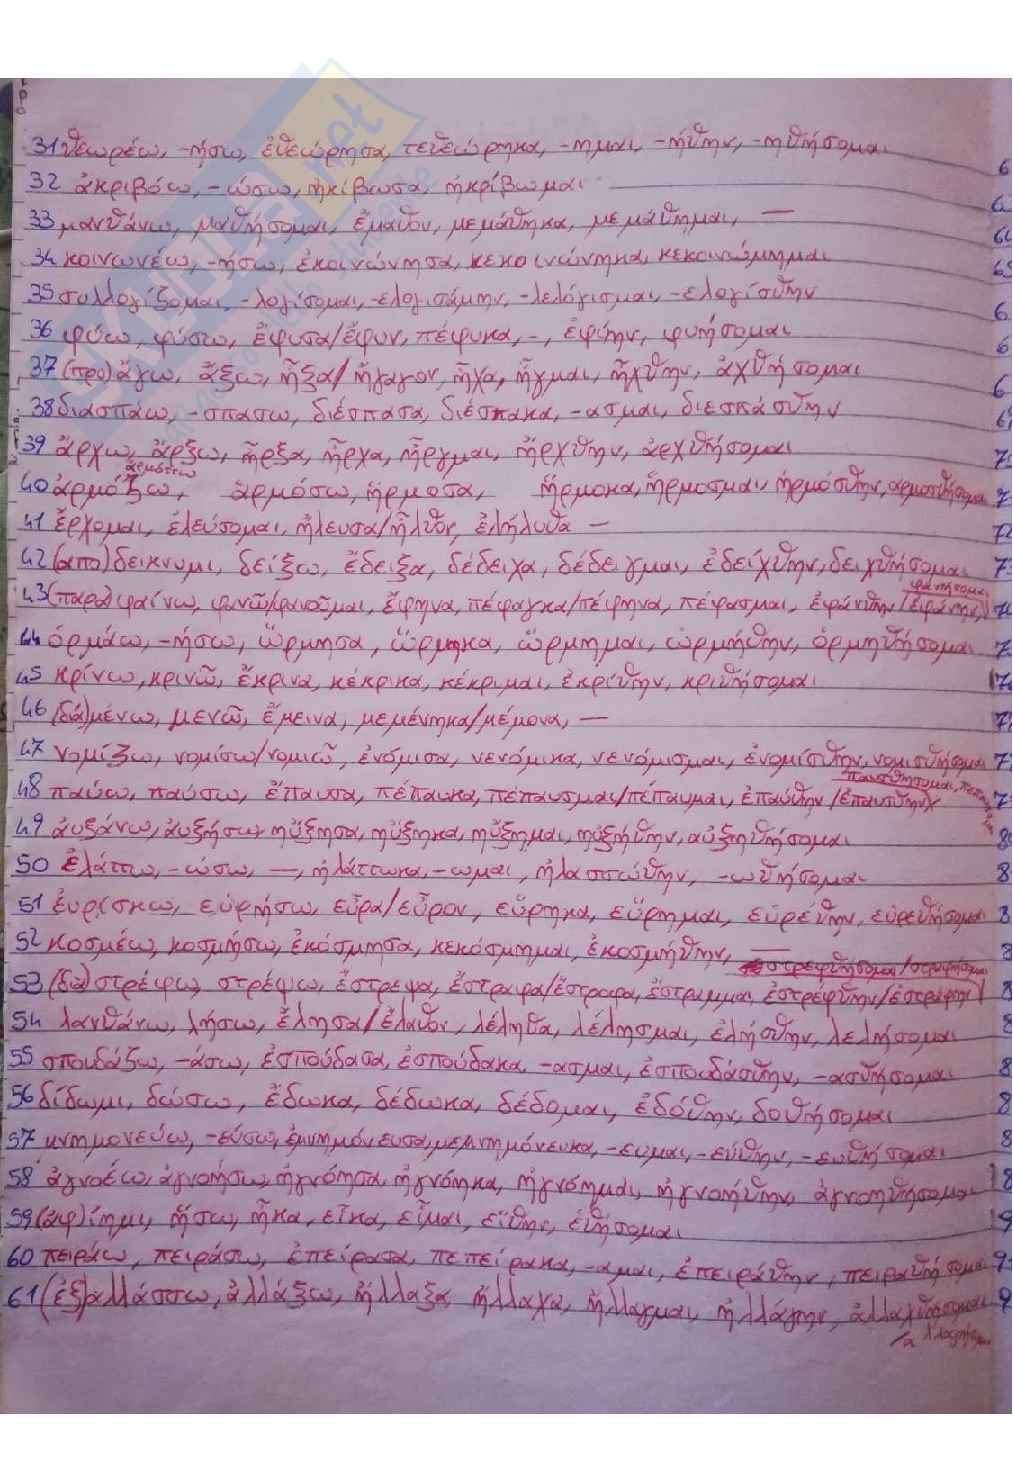 31 θεωρέω, -ήσω, ἐθεώρησα, τεθεώρηκα, -ημαι, -ήθην, -ηθήσομαι
32 ἀκριβόω, -ώσω, ἠκίβωσα, ἠκρίβωμαι
33 μανθάνω, μαθήσομαι, ἔμαθον, μεμάθηκα, μεμάθημαι, —
34 κοινωνέω, -ήσω, ἐκοινώνησα, κεκοινώνηκα, κεκοινώνημαι
35 συλλογίζομαι, -λογίσομαι, -ελογισάμην, -λελόγισμαι, -ελογίσθην
36 φύω, φύσω, ἔφυσα/ἔφυν, πέφυκα, -, ἐφύην, φυήσομαι
37 (προ)άγω, ἄξω, ἦξα/ἤγαγον, ἦχα, ἦγμαι, ἤχθην, ἀχθήσομαι
38 διασπάω, -σπασω, διέσπασα, διέσπακα, -ασμαι, διεσπάσθην
39 ἄρχω, ἄρξω, ἦρξα, ἦρχα, ἦργμαι, ἤρχθην, ἀρχθήσομαι
ἁρμόττω
40 ἁρμόζω, ἁρμόσω, ἥρμοσα, ἥρμοκα, ἥρμοσμαι, ἡρμόσθην, ἁρμοσθήσομαι
41 ἔρχομαι, ἐλεύσομαι, ἤλευσα/ἦλθον, ἐλήλυθα —
42 (απο)δεικνυμι, δείξω, ἔδειξα, δέδειχα, δέδειγμαι, ἐδείχθην, δειχθήσομαι
φανήσομαι
43 (παρα)φαίνω, φανῶ/φανοῦμαι, ἔφηνα, πέφαγκα/πέφηνα, πέφασμαι, ἐφάνθην/(ἐφάνην)
44 ὁρμάω, -ήσω, ὥρμησα, ὥρμηκα, ὥρμημαι, ὡρμήθην, ὁρμηθήσομαι
45 κρίνω, κρινῶ, ἔκρινα, κέκρικα, κέκριμαι, ἐκρίθην, κριθήσομαι
46 (διά)μένω, μενῶ, ἔμεινα, μεμένηκα/μέμονα, —
47 νομίζω, νομίσω/νομιῶ, ἐνόμισα, νενόμικα, νενόμισμαι, ἐνομίσθην, νομισθήσομαι
παυσθήσομαι,
48 παύω, παύσω, ἔπαυσα, πέπαυκα, πέπαυσμαι/πέπαυμαι, ἐπαύθην/(ἐπαύσθην)
49 ἀυξάνω, ἀυξήσω, ηὔξησα, ηὔξηκα, ηὔξημαι, ηὐξήθην, αὐξηθήσομαι
50 ἐλάττω, -ώσω, —, ἠλάττωκα, -ωμαι, ἠλασσώθην, -ωθήσομαι
51 ἑυρίσκω, εὑρήσω, εὗρα/εὗρον, εὕρηκα, εὕρημαι, εὑρέθην, εὑρεθήσομαι
52 κοσμέω, κοσμήσω, ἐκόσμησα, κεκόσμημαι, ἐκοσμήθην, —
στρεφθήσομαι/στραφήσομαι
53 (δια)στρέφω, στρέψω, ἔστρεψα, ἔστραφα/ἔστροφα, ἔστραμμαι, ἐστρέφθην/ἐστράφην
54 λανθάνω, λήσω, ἔλησα/ἔλαθον, λέληθα, λέλησμαι, ἐλήσθην, λελήσομαι
55 σπουδάζω, -άσω, ἐσπούδασα, ἐσπούδακα, -ασμαι, ἐσπουδάσθην, -ασθήσομαι
56 δίδωμι, δώσω, ἔδωκα, δέδωκα, δέδομαι, ἐδόθην, δοθήσομαι
57 μνημονεύω, -εύσω, ἐμνημόνευσα, μεμνημόνευκα, -ευμαι, -εύθην, -ευθήσομαι
58 ἀγνοέω, ἀγνοήσω, ἠγνόησα, ἠγνόηκα, ἠγνόημαι, ἠγνοήθην, ἀγνοηθήσομαι
59 (ἀφ)ίημι, ἥσω, ἧκα, εἷκα, εἷμαι, εἵθην, ἑθήσομαι
60 πειράω, πειράσω, ἐπείρασα, πεπείρακα, -αμαι, ἐπειράθην, πειραθήσομαι
61 (ἐξ)αλλάσσω, ἀλλάξω, ἤλλαξα, ἤλλαχα, ἤλλαγμαι, ἠλλάγην, ἀλλαχθήσομαι